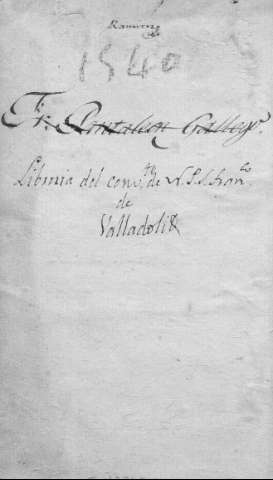 Ramirez
1540
Fr. Pantaleon Gallego.
Libreria del conv.to de N. P. S. Fran.co
de
Valladolid